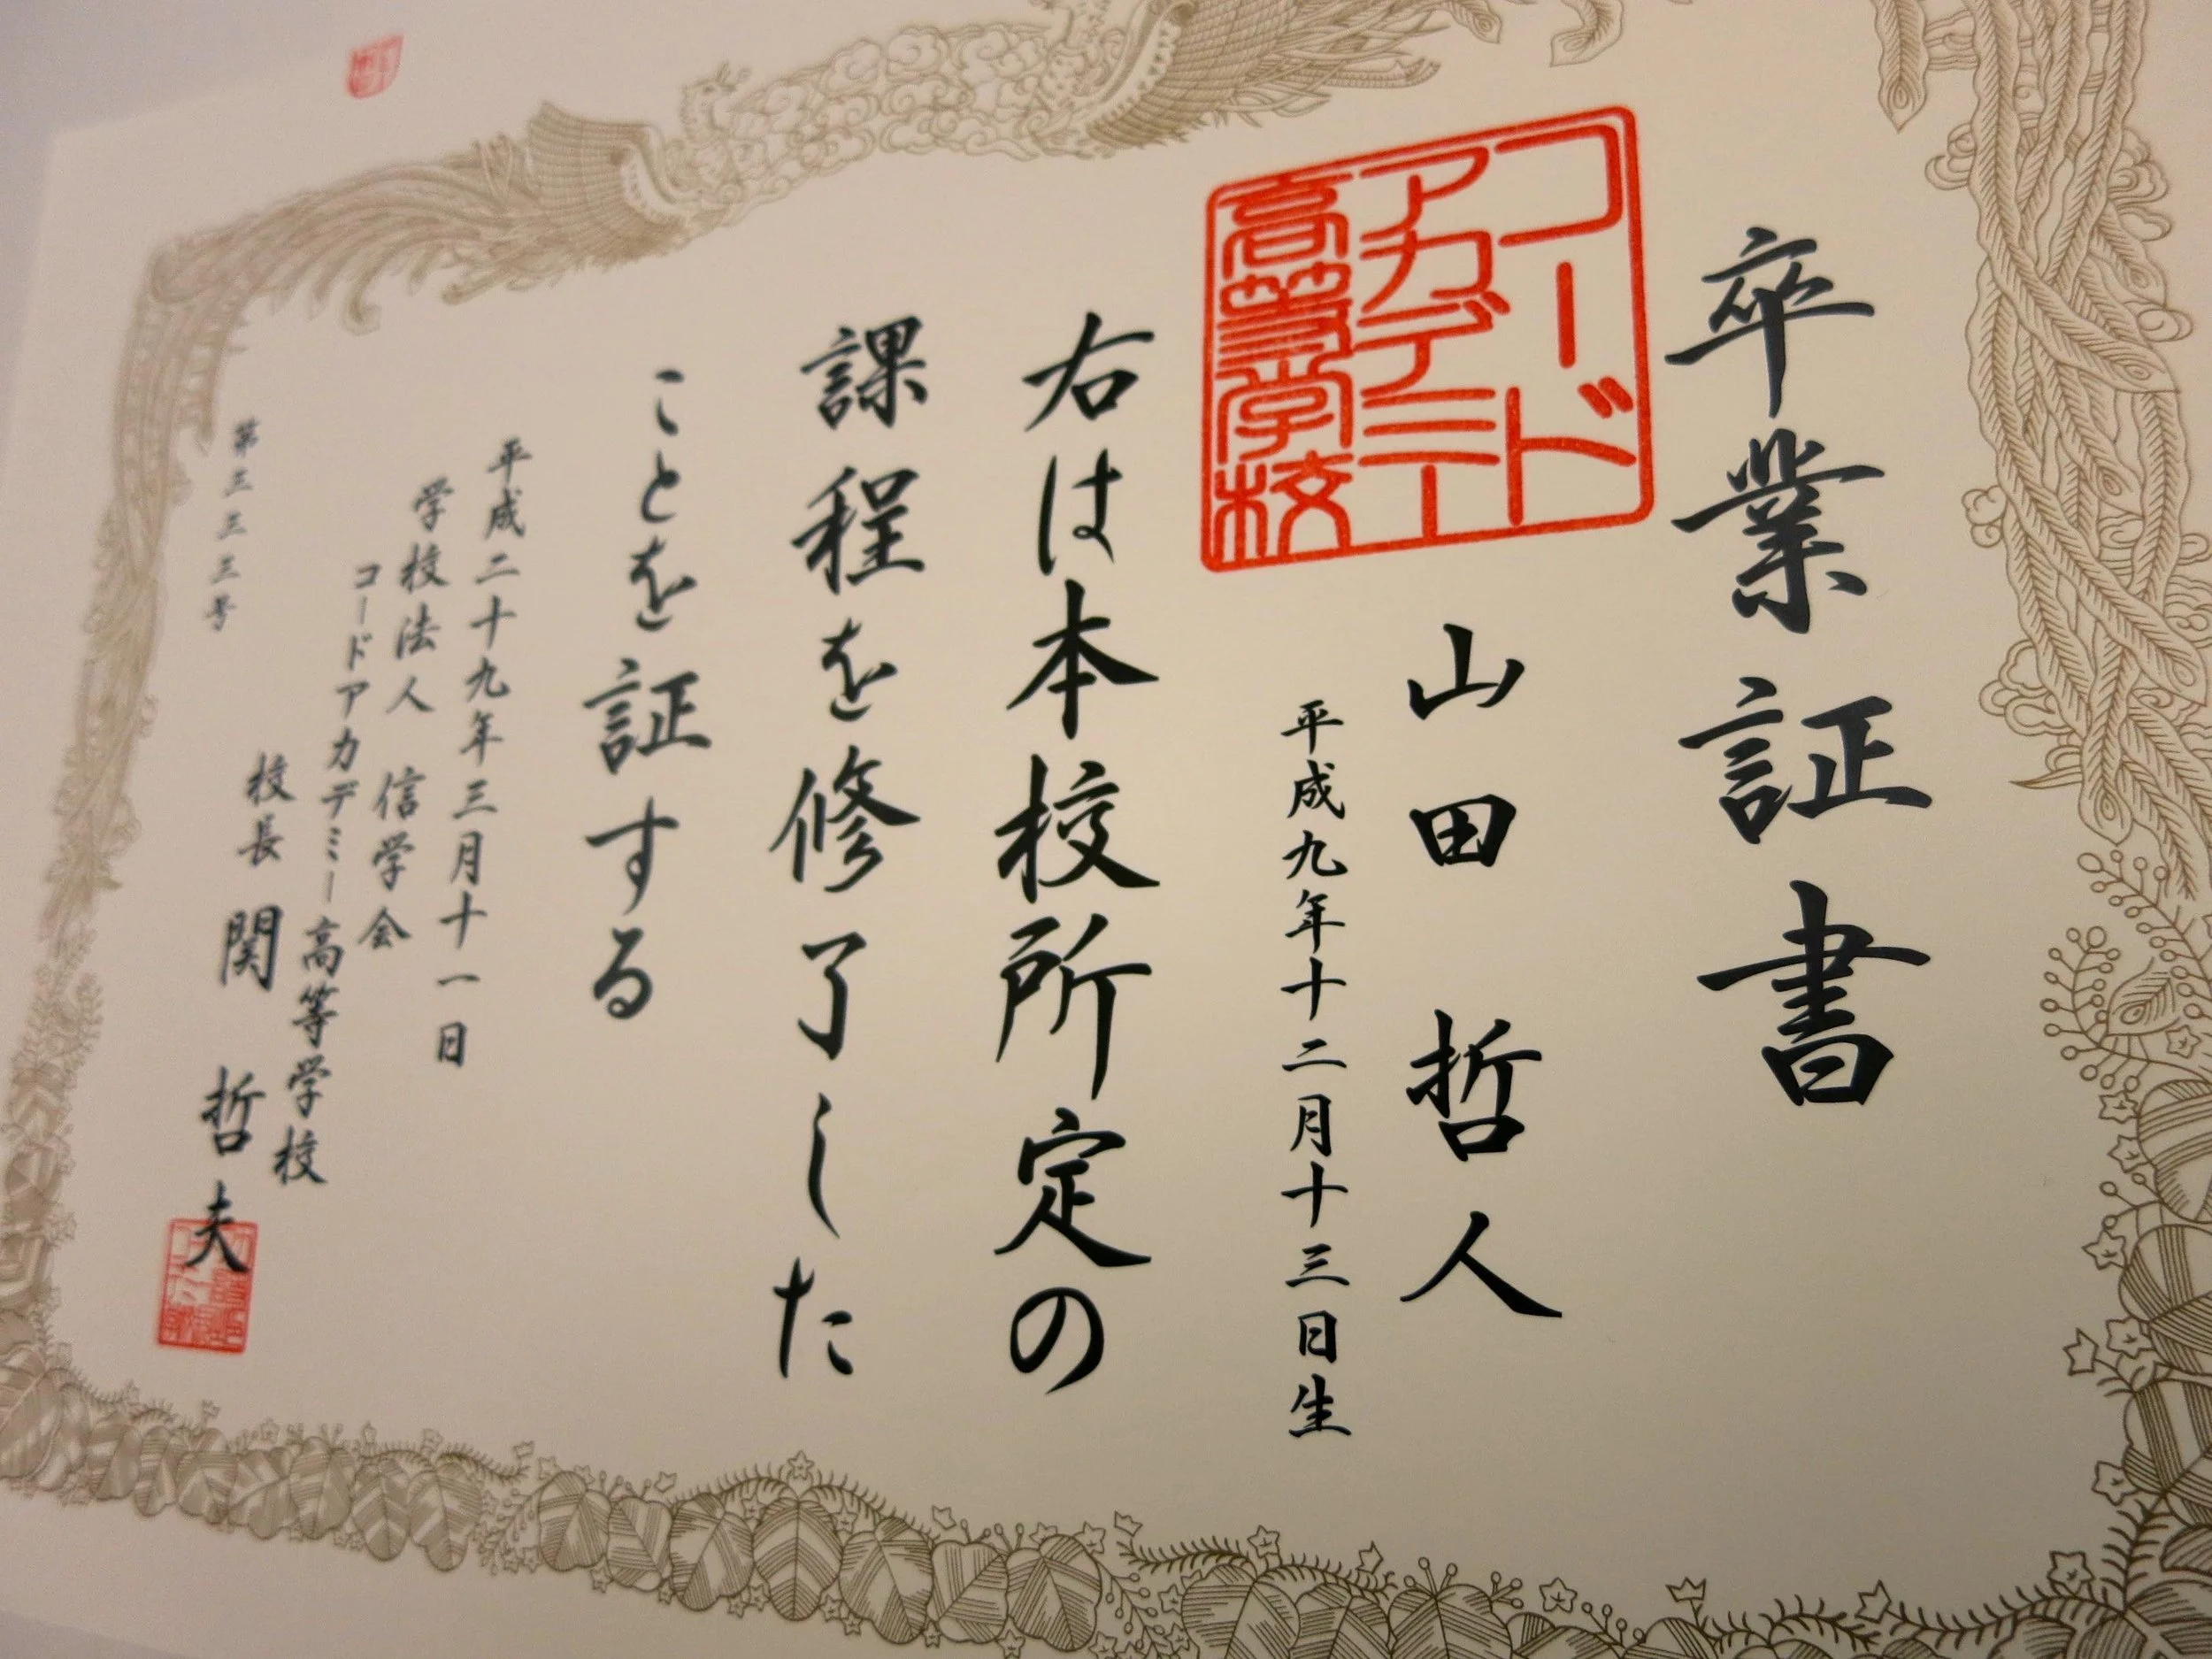 卒業証書
コード
アカデミー
高等学校
山田 哲人
平成九年十二月十三日生
右は本校所定の
課程を修了した
ことを証する
平成二十九年三月十一日
学校法人 信学会
コードアカデミー高等学校
校長 関 哲夫
第三三三号